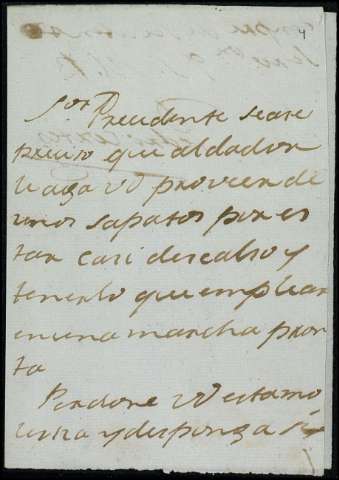 4
Sor Precidente seare
preciso que al dador
le aga VO proveer de
unos sapatos por es
tar casi descalso y
tenerlo que emplear
en una marcha pron
ta
Perdone VO esta mo
lestia y disponga